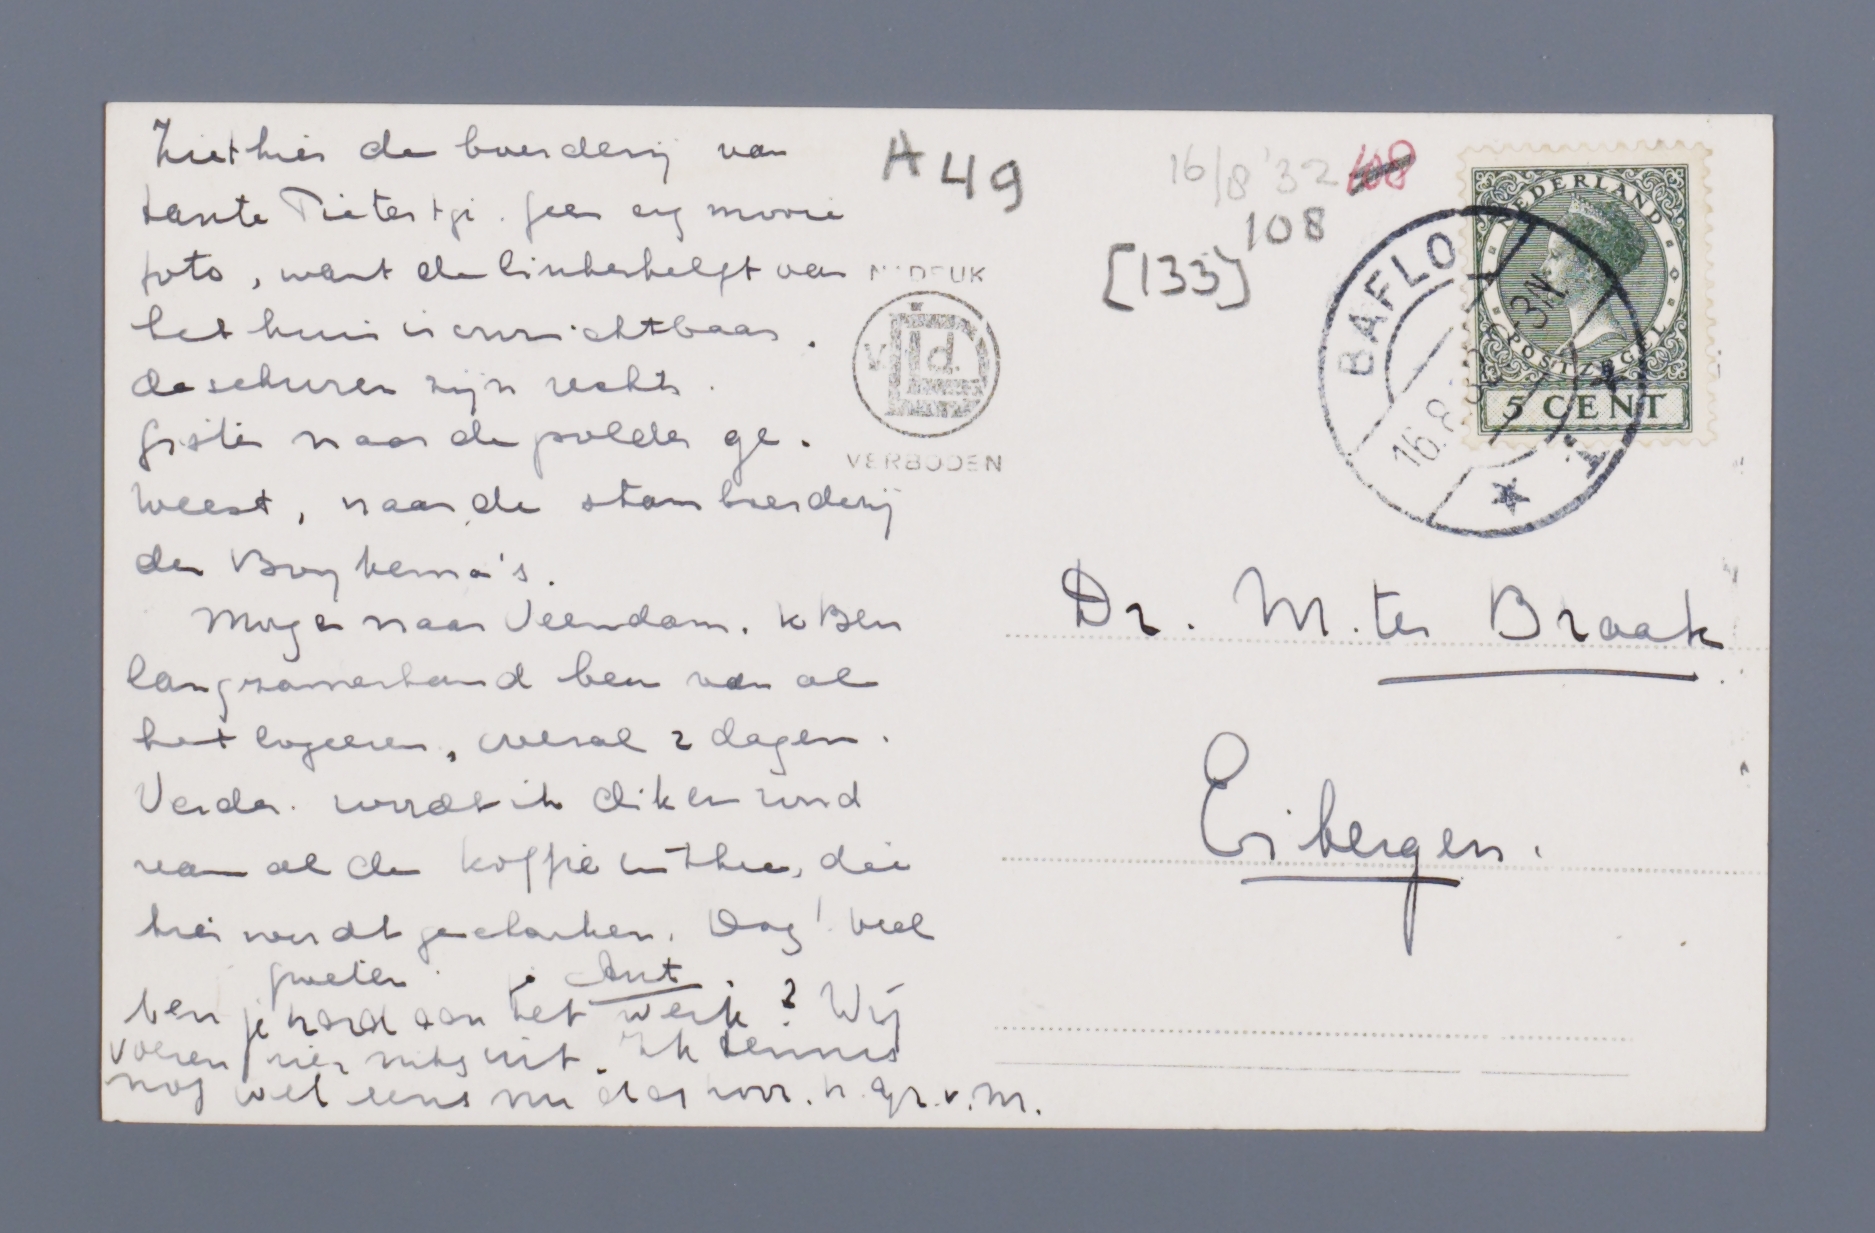 Ziethier de boerderij van
tante Pietertje. geen erg mooie
foto, want de linkerhelft van
het huis is onzichtbaar.
de schuren zijn rechts.
Gister naar de polder ge-
weest, naar de stamboerderij
der Buykema's.
Morgen naar Veendam. Ik Ben
langzamerhand beu van al
het logeeren, overal 2 dagen.
Verder wordt ik dik en rond
van al de koffie en thee, die
hier wordt gedronken. Dag! veel
groeten je Ant.
ben je hard aan het werk? Wij
voeren hier niks uit. Ik tennis
nog wel eens nu en dan h. gr. v. M.
A 49
16/8 '32 108
108
[133]
NADRUK
v. Id.
VERBODEN
NEDERLAND
POSTZEGEL
5 CENT
BAFLO
16.8.32 3N
Dr. M. ter Braak
Eibergen.